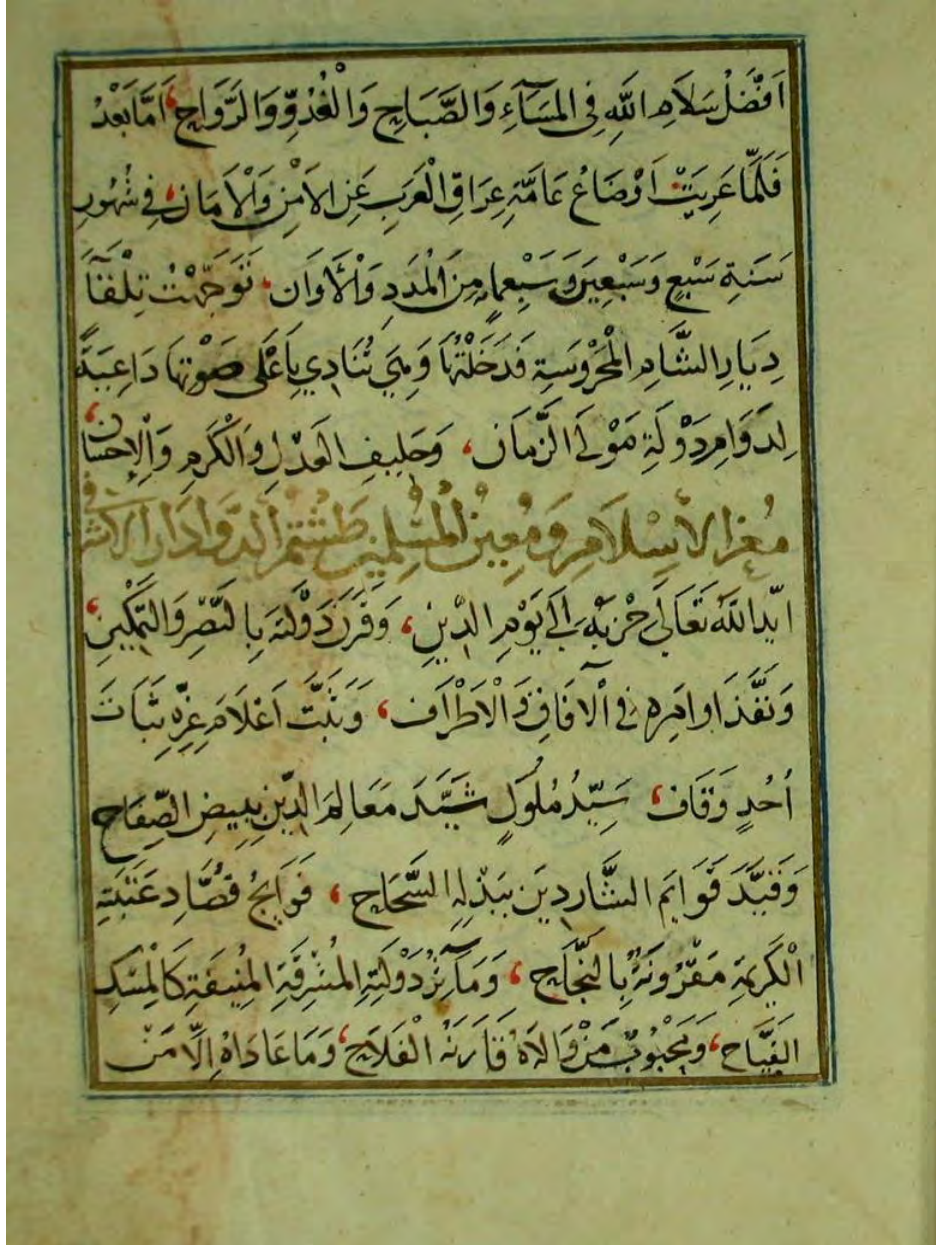 اَفْضَلُ سَلَامِ اللّٰهِ فِى الْمَسَآءِ وَالصَّبَاحِ وَالْغُدُوِّ وَالرَّوَاحِ، اَمَّا بَعْدُ
فَلَمَّا عَرِيَتْ اَوْضَاعُ عَامَّةِ عِرَاقِ الْعَرَبِ عَنِ الْاَمْنِ وَالْاَمَانِ، فِي شُهُورِ
سَنَةِ سَبْعٍ وَسَبْعِينَ وَسَبْعِمِايةٍ مِنَ الْمُدَدِ وَالْأَوَانِ، تَوَجَّهْتُ تِلْقَآءَ
دِيَارِ الشَّامِ الْمَحْرُوسَةِ فَدَخَلْتُهَا وَهِيَ تُنَادِي بِاَعْلَى صَوْتِهَا دَاعِيَةً
لِدَوَامِ دَوْلَةِ مَوْلَى الزَّمَانِ، وَحَلِيفِ الْعَدْلِ وَالْكَرَمِ وَالْاِحْسَانِ،
مُعِزِّ الْاِسْلَامِ وَمُعِينِ الْمُسْلِمِينَ طَشْتَمُرَ الدَّوَادَارِ الْاَشْرَفِي
ايّد اللّٰهُ تَعَالَى حِزْبَهُ اِلَى يَوْمِ الدِّيْنِ، وَقَرَنَ دَوْلَتَهُ بِالنَّصْرِ وَالتَّمْكِينِ،
وَنَفَّذَ اَوَامِرَهُ فِي الْآفَاقِ وَالْاَطْرَافِ، وَثَبَّتَ اَعْلَامَ عِزِّهِ ثَبَاتَ
اُحُدٍ وَقَاف، سَيِّدُ مُلُوكٍ شَيَّدَ مَعَالِمَ الدِّينِ بِبِيضِ الصِّفَاحِ
وَقَيَّدَ قَوَايِمَ الشَّارِدِينَ بِبَذْلِهِ السَّحَّاحِ، فَوَايِحُ قُصَّادِ عَتَبَتِهِ
الْكَرِيمَةِ مَقْرُونَةٌ بِالنَّجَاحِ، وَمَآثِرُ دَوْلَتِهِ الْمُشْرِقَةِ الْمُنِيفَةِ كَالْمِسْكِ
الْفَيَّاحِ، وَمَحْبُوبٌ مَنْ وَالَاهُ قَارَنَهُ الْفَلَاحُ، وَمَا عَادَاهُ اِلَّا مَنْ